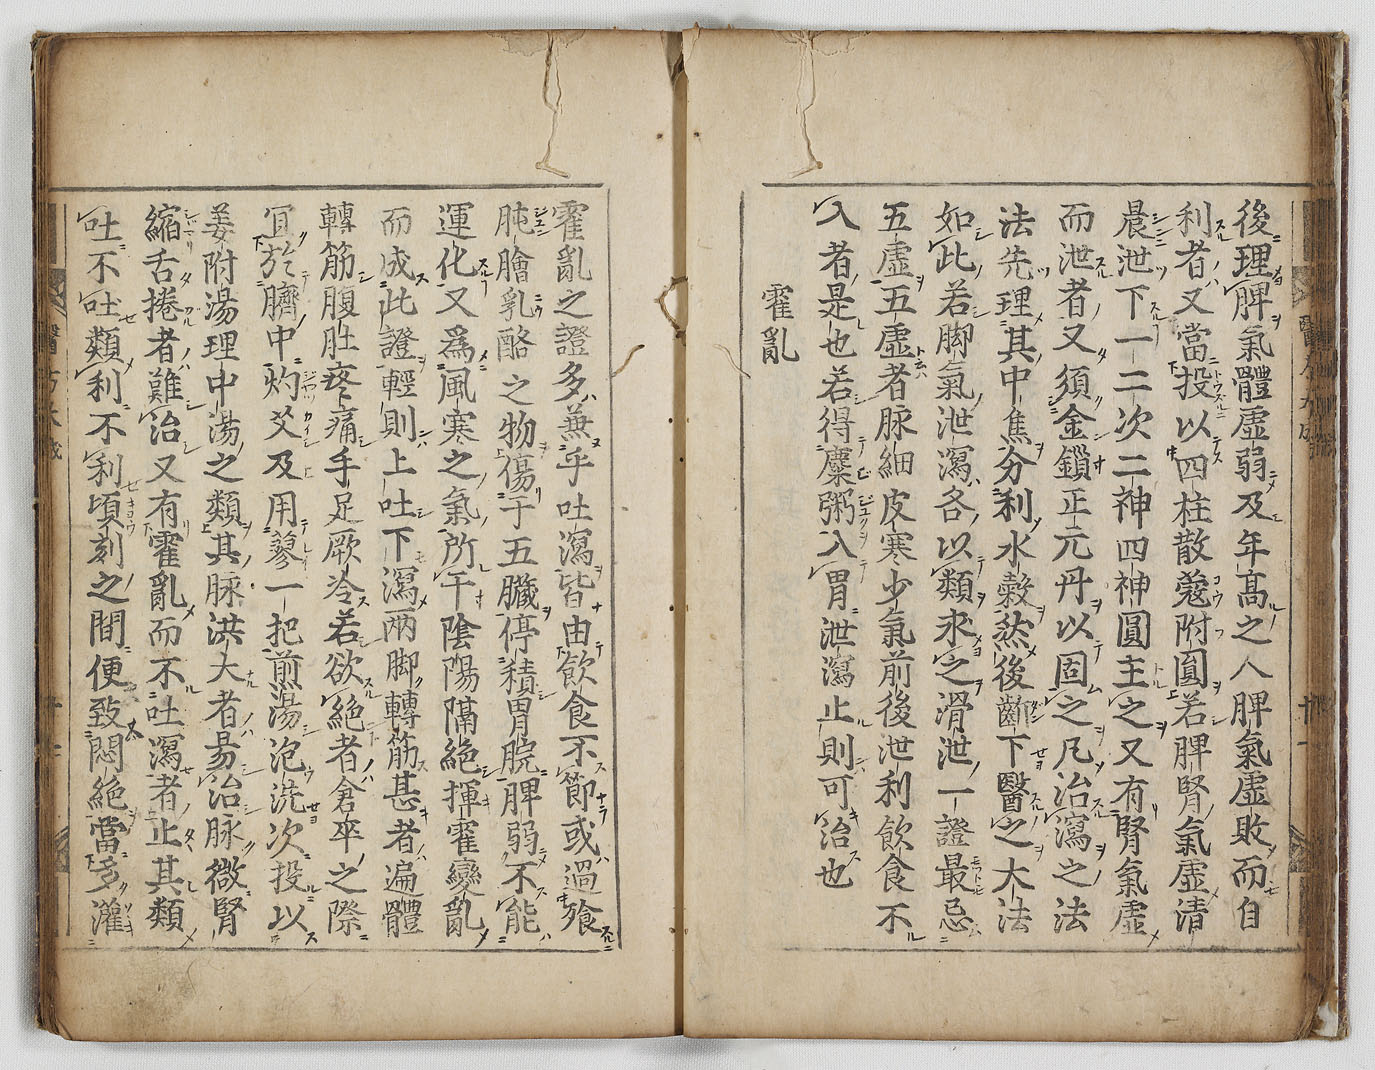 後理脾氣體虛弱及年高之人脾氣虛敗而自
利者又當投以四柱散蔻附圓若脾腎氣虛清
晨泄下一二次二神四神圓主之又有腎氣虛
而泄者又須金鎖正元丹以固之凡治瀉之法
法先理其中焦分利水穀然後斷下醫之大法
如此若脚氣泄瀉各以類求之滑泄一證最忌
五虛五虛者脉細皮寒少氣前後泄利飲食不
入者是也若得麋粥入胃泄瀉止則可治也
霍亂
霍亂之證多兼乎吐瀉皆由飲食不節或過飡
肫膾乳酪之物傷于五臟停積胃脘脾弱不能
運化又爲風寒之氣所干陰陽隔絶揮霍變亂
而成此證輕則上吐下瀉兩脚轉筋甚者遍體
轉筋腹肚疼痛手足厥冷若欲絶者倉卒之際
冝於臍中灼艾及用蓼一把煎湯泡洗次投以
姜附湯理中湯之類其脉洪大者昜治脉微腎
縮舌捲者難治又有霍亂而不吐瀉者止其類
吐不吐類利不利頃刻之間便致悶絶當多灌